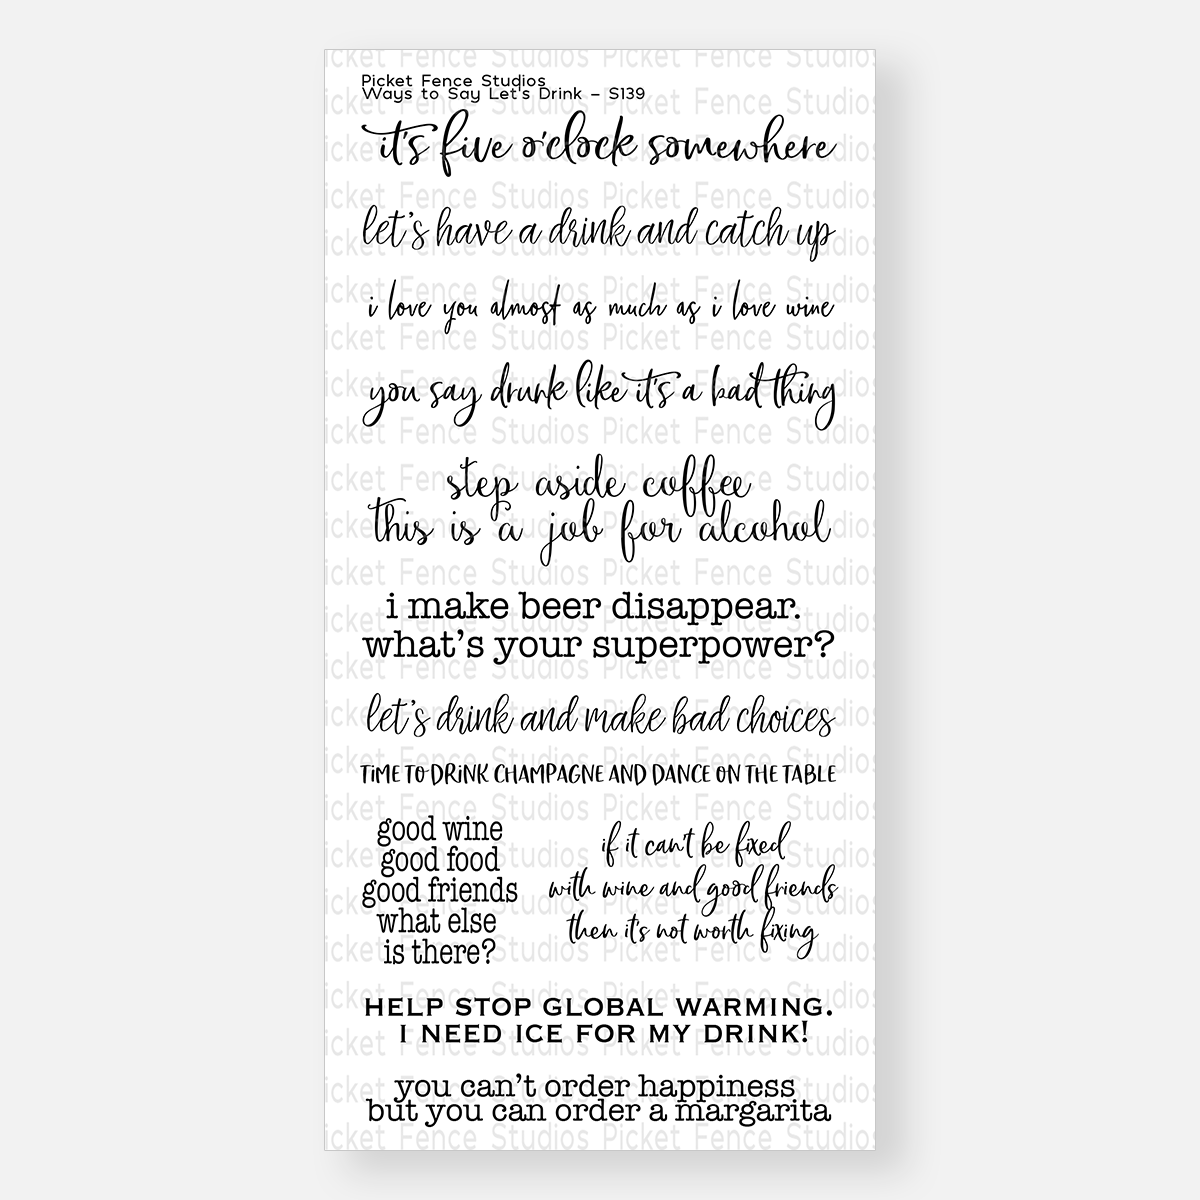 Picket Fence Studios
Ways to Say Let's Drink - S139
it's five o'clock somewhere
let's have a drink and catch up
i love you almost as much as i love wine
you say drunk like it's a bad thing
step aside coffee
this is a job for alcohol
i make beer disappear.
what's your superpower?
let's drink and make bad choices
TiME TO DRiNK CHAMPAGNE AND DANCE ON THE TABLE
good wine
good food
good friends
what else
is there?
if it can't be fixed
with wine and good friends
then it's not worth fixing
HELP STOP GLOBAL WARMING.
I NEED ICE FOR MY DRINK!
you can't order happiness
but you can order a margarita